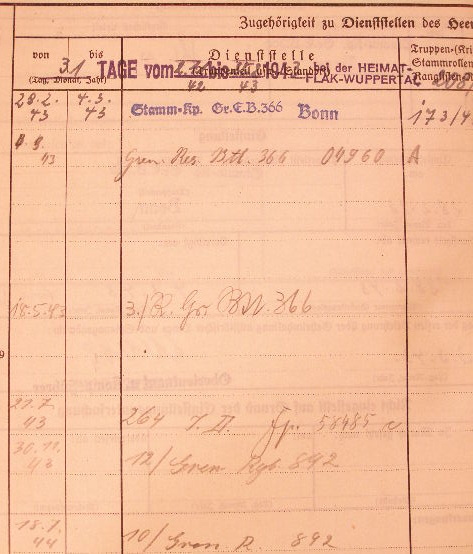 Zugehörigkeit zu Dienststellen des Heer
von bis
(Tag, Monat, Jahr)
Dienststelle
Truppen-(Kri
Stammrollen
Ranglisten-N
31 TAGE vom bis 1943 bei der HEIMAT-
FLAK-WUPPERTAL
42 43
28.2. 4.3.
43 43
Stamm-Kp. Gr.E.B.366 Bonn
173/4
43
Gren. Res. Btl. 366 04960 A
18.5.43 3./R. Gr. Btl. 366
9
21.7.
43
264 I.D. Fp. 56485 c
30.11.
43
12/Gren Rgt. 892
18.1.
44
10/Gren. R. 892